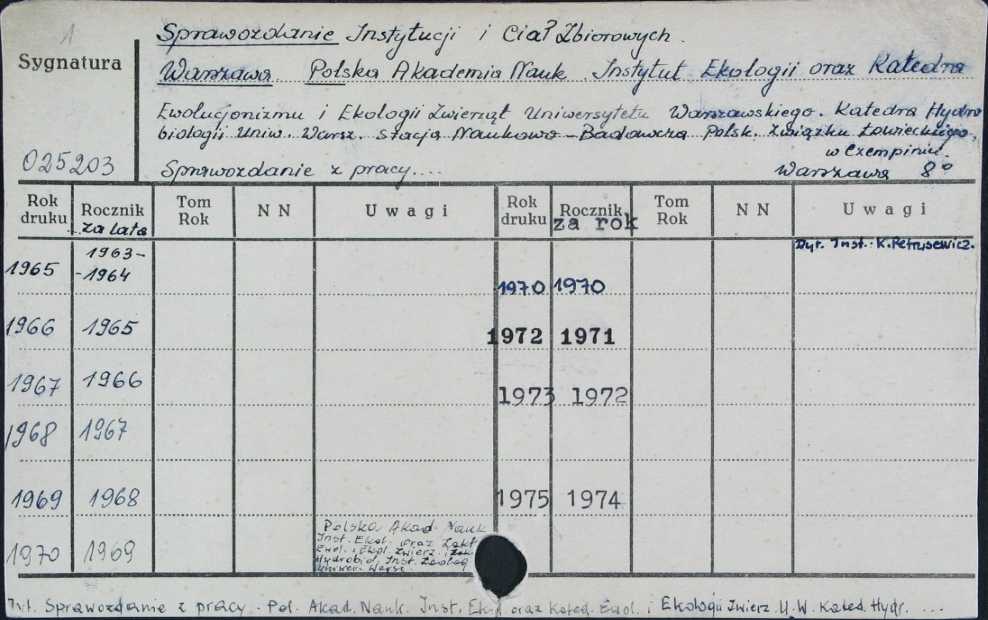 1
Sprawozdanie Instytucji i Ciał Zbiorowych.
Sygnatura
Warszawa Polska Akademia Nauk. Instytut Ekologii oraz Katedra
Ewolucjonizmu i Ekologii Zwierząt Uniwersytetu Warszawskiego. Katedra Hydro
biologii Uniw. Warsz. Stacja Naukowo-Badawcza Polsk. Związku Łowieckiego,
w Czempiniu.
025203
Sprawozdanie z pracy.... Warszawa 8°
Rok druku Rocznik Tom Rok NN Uwagi Rok druku Rocznik Tom Rok NN Uwagi
za lata za rok
Dyr. Inst. K. Petrusewicz.
1965 1963-
-1964
1970 1970
1966 1965 1972 1971
1967 1966 1973 1972
1968 1967
1969 1968 1975 1974
1970 1969
Polska Akad. Nauk
Inst. Ekol. oraz Zakł
Ewol. i Ekol. Zwierz. i
Hydrobiol. Inst. Zoolog
Uniwer. Warsz.
Tyt. Sprawozdanie z pracy. Pol. Akad. Nauk. Inst. Ekol. oraz Kated. Ewol. i Ekologii Zwierz. U.W. Kated. Hydr. ...